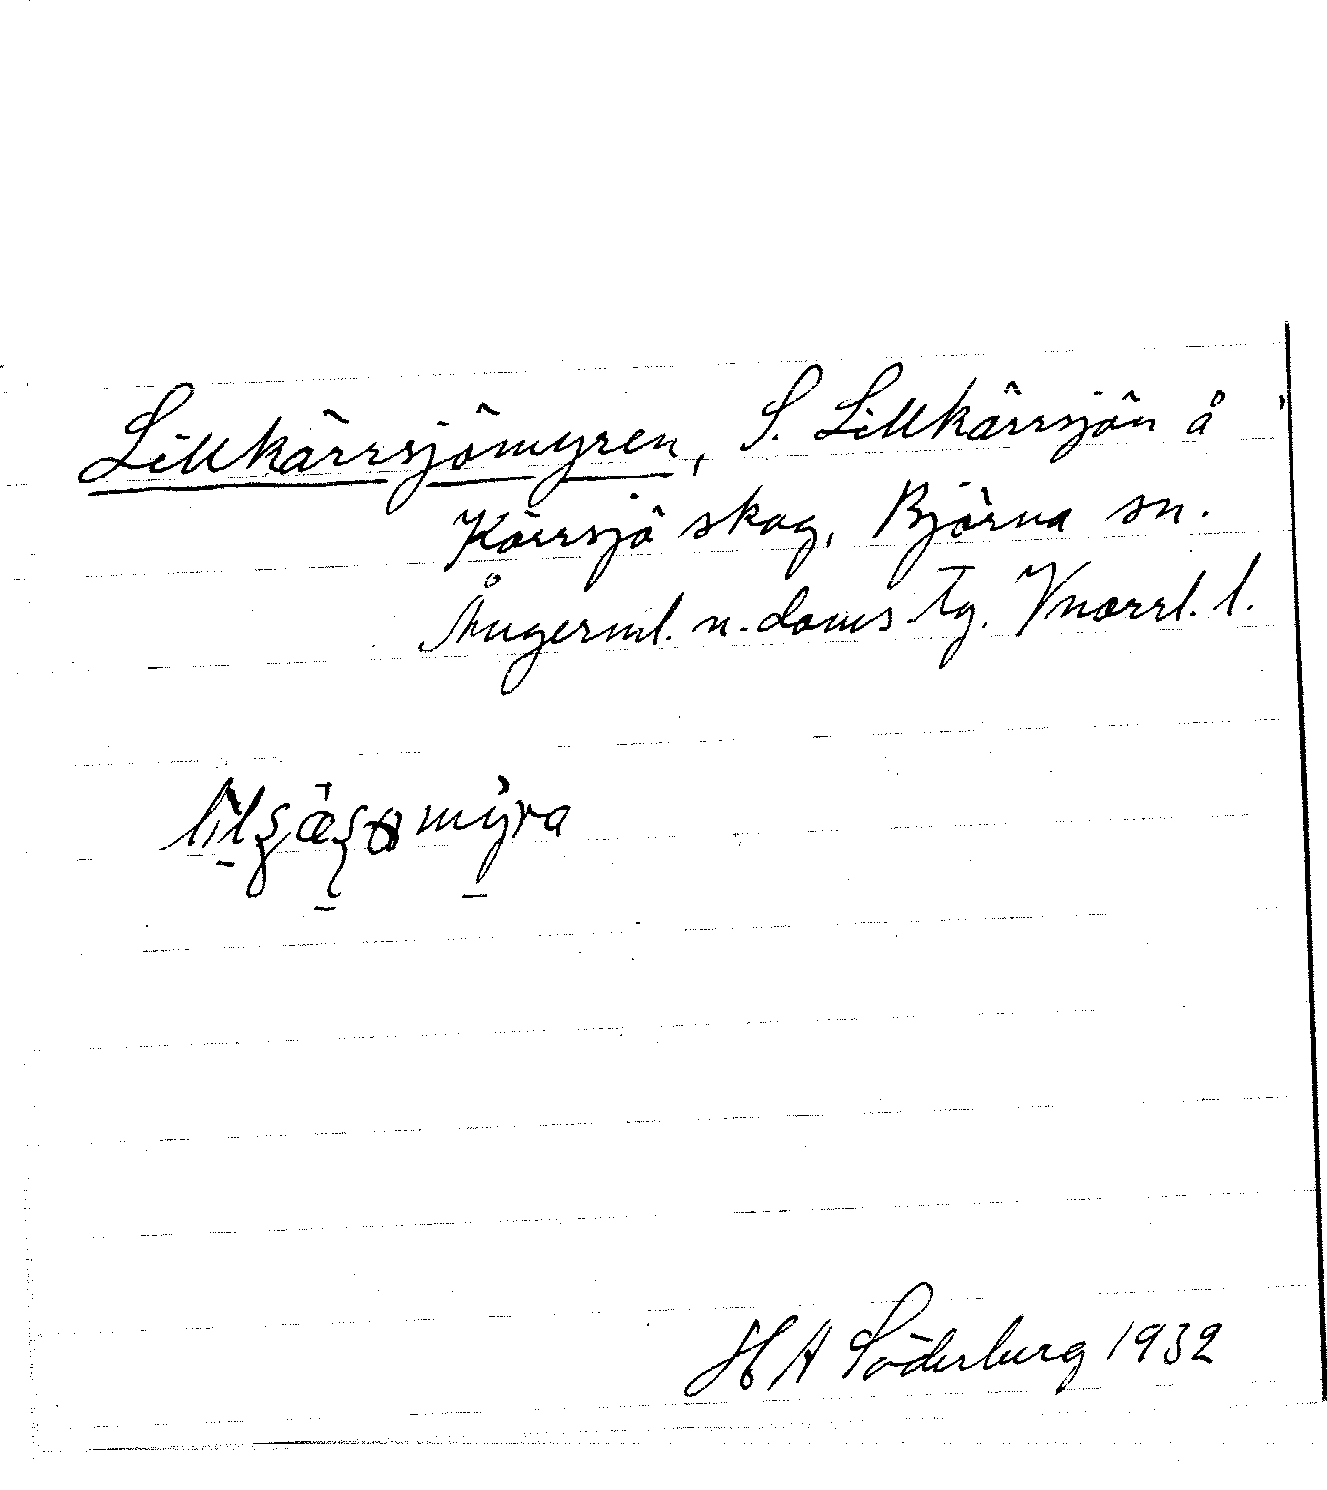 Lillkärrsjömyren, S. Lillkärrsjön å
Kärrsjö skog, Björna sn.
Ångerml. n. doms tg. Vnorrl. l.
H A Söderberg 1932